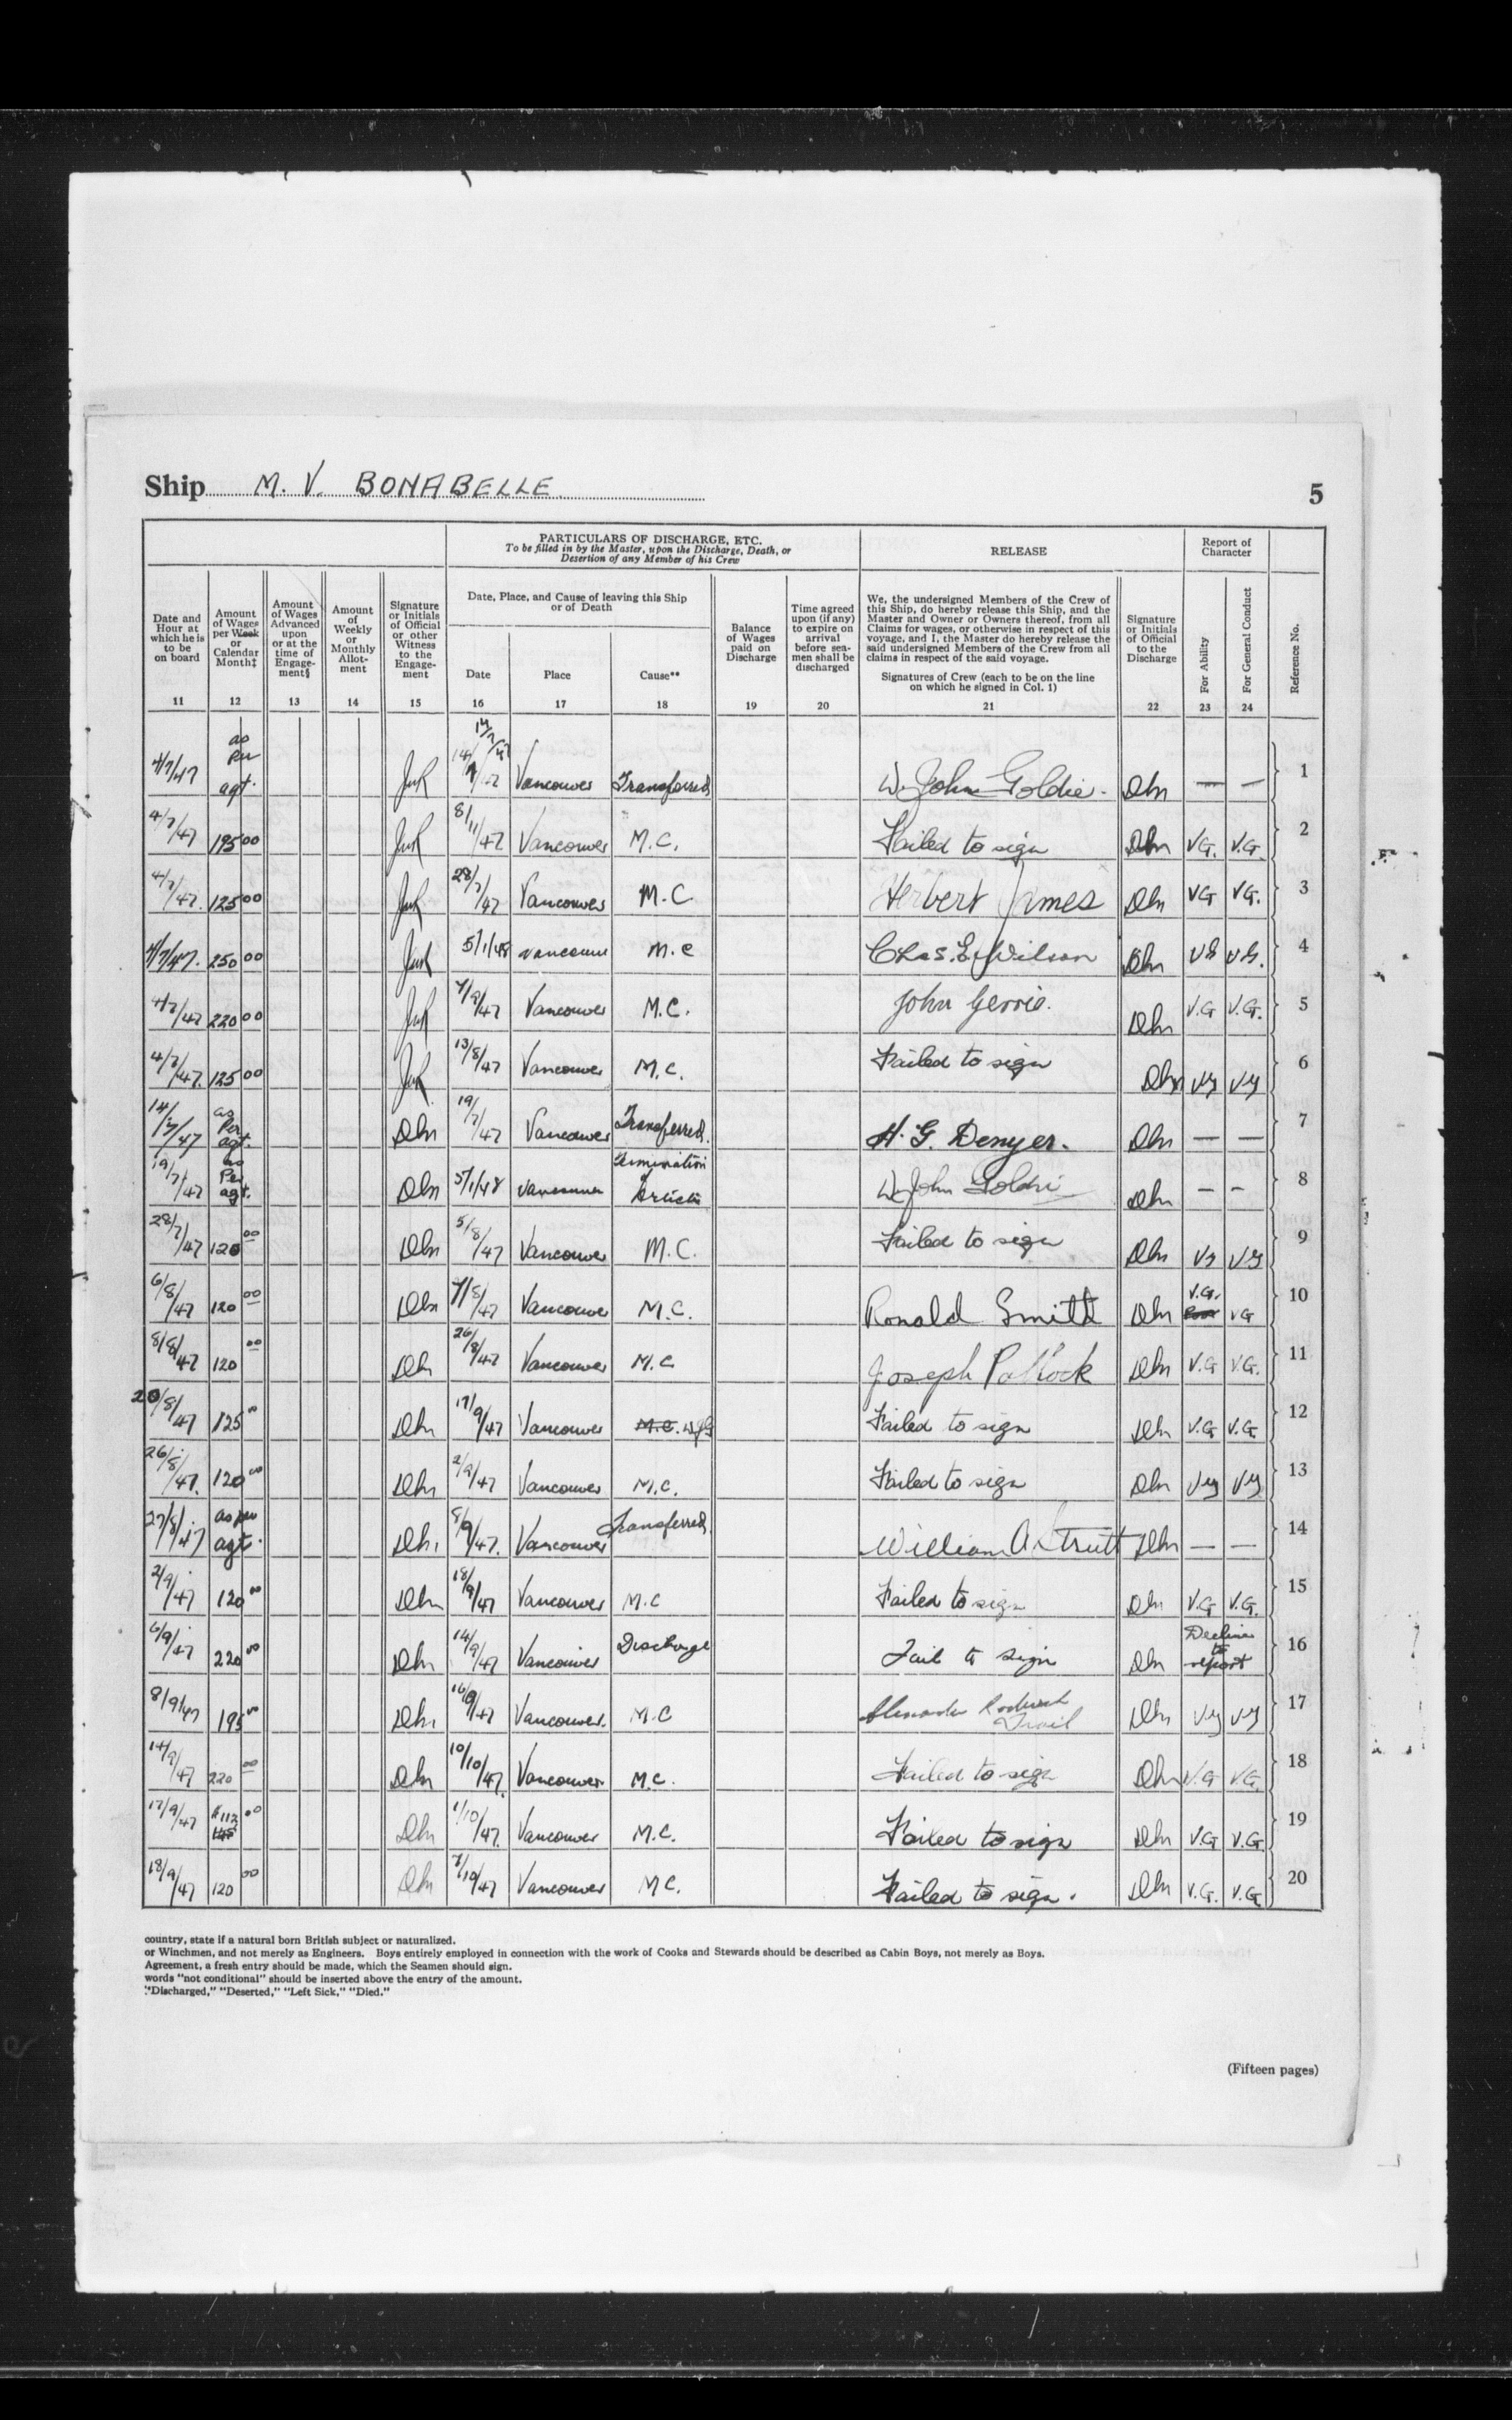 Ship M. V. BONABELLE
5
PARTICULARS OF DISCHARGE, ETC.
To be filled in by the Master, upon the Discharge, Death, or
Desertion of any Member of his Crew
RELEASE
Report of
Character
Date and
Hour at
which he is
to be
on board
Amount
of Wages
per Week
or
Calendar
Month‡
Amount
of Wages
Advanced
upon
or at the
time of
Engage-
ment§
Amount
of
Weekly
or
Monthly
Allot-
ment
Signature
or Initials
of Official
or other
Witness
to the
Engage-
ment
Date, Place, and Cause of leaving this Ship
or of Death
Date
Place
Cause**
Balance
of Wages
paid on
Discharge
Time agreed
upon (if any)
to expire on
arrival
before sea-
men shall be
discharged
We, the undersigned Members of the Crew of
this Ship, do hereby release this Ship, and the
Master and Owner or Owners thereof, from all
Claims for wages, or otherwise in respect of this
voyage, and I, the Master do hereby release the
said undersigned Members of the Crew from all
claims in respect of the said voyage.
Signatures of Crew (each to be on the line
on which he signed in Col. 1)
Signature
or Initials
of Official
to the
Discharge
For Ability
For General Conduct
Reference No.
11 12 13 14 15 16 17 18 19 20 21 22 23 24
4/7/47 as per agt. Vancouver Transferred W. John Goldie. — — 1
4/7/47 195 00 8/11/47 Vancouver M.C. Failed to sign VG. V.G. 2
4/7/47. 125 00 28/7/47 Vancouver M.C. Herbert James VG VG. 3
4/7/47. 250 00 5/1/48 Vancouver M.C Chas. E. Wilson VG VG. 4
4/7/47 220 00 7/9/47 Vancouver M.C. John Gerrie. V.G V.G. 5
4/7/47. 125 00 13/8/47 Vancouver M.C. Failed to sign Vg Vg 6
14/7/47 as Per agt. 19/7/47 Vancouver Transferred. H. G. Denyer. — — 7
19/7/47 as Per agt. 5/1/48 Vancouver Termination of Articles W. John Goldie — — 8
28/7/47 120 00 5/8/47 Vancouver M.C. Failed to sign Vg Vg 9
6/8/47 120 00 7/8/47 Vancouver M.C. Ronald Smith V.G. VG 10
8/8/47 120 00 26/8/47 Vancouver M.C Joseph Pollock V.G V.G. 11
20/8/47 125 00 17/9/47 Vancouver M.C. WJG Failed to sign V.G V.G. 12
26/8/47. 120 00 2/9/47 Vancouver M.C. Failed to sign Vg Vg 13
27/8/47 as per agt. 8/9/47. Vancouver Transferred. William A Strutt — — 14
2/9/47 120 00 18/9/47 Vancouver M.C Failed to sign V.G V.G. 15
6/9/47 220 00 14/9/47 Vancouver Discharge Fail to sign Decline to report 16
8/9/47 195 00 16/9/47 Vancouver. M.C Trail Vg Vg 17
14/9/47 220 00 10/10/47. Vancouver M.C. Failed to sign V.G V.G. 18
17/9/47 00 1/10/47. Vancouver M.C. Failed to sign V.G V.G. 19
18/9/47 120 00 7/10/47 Vancouver M.C. Failed to sign. V.G. V.G 20
country, state if a natural born British subject or naturalized.
or Winchmen, and not merely as Engineers. Boys entirely employed in connection with the work of Cooks and Stewards should be described as Cabin Boys, not merely as Boys.
Agreement, a fresh entry should be made, which the Seamen should sign.
words "not conditional" should be inserted above the entry of the amount.
"Discharged," "Deserted," "Left Sick," "Died."
(Fifteen pages)